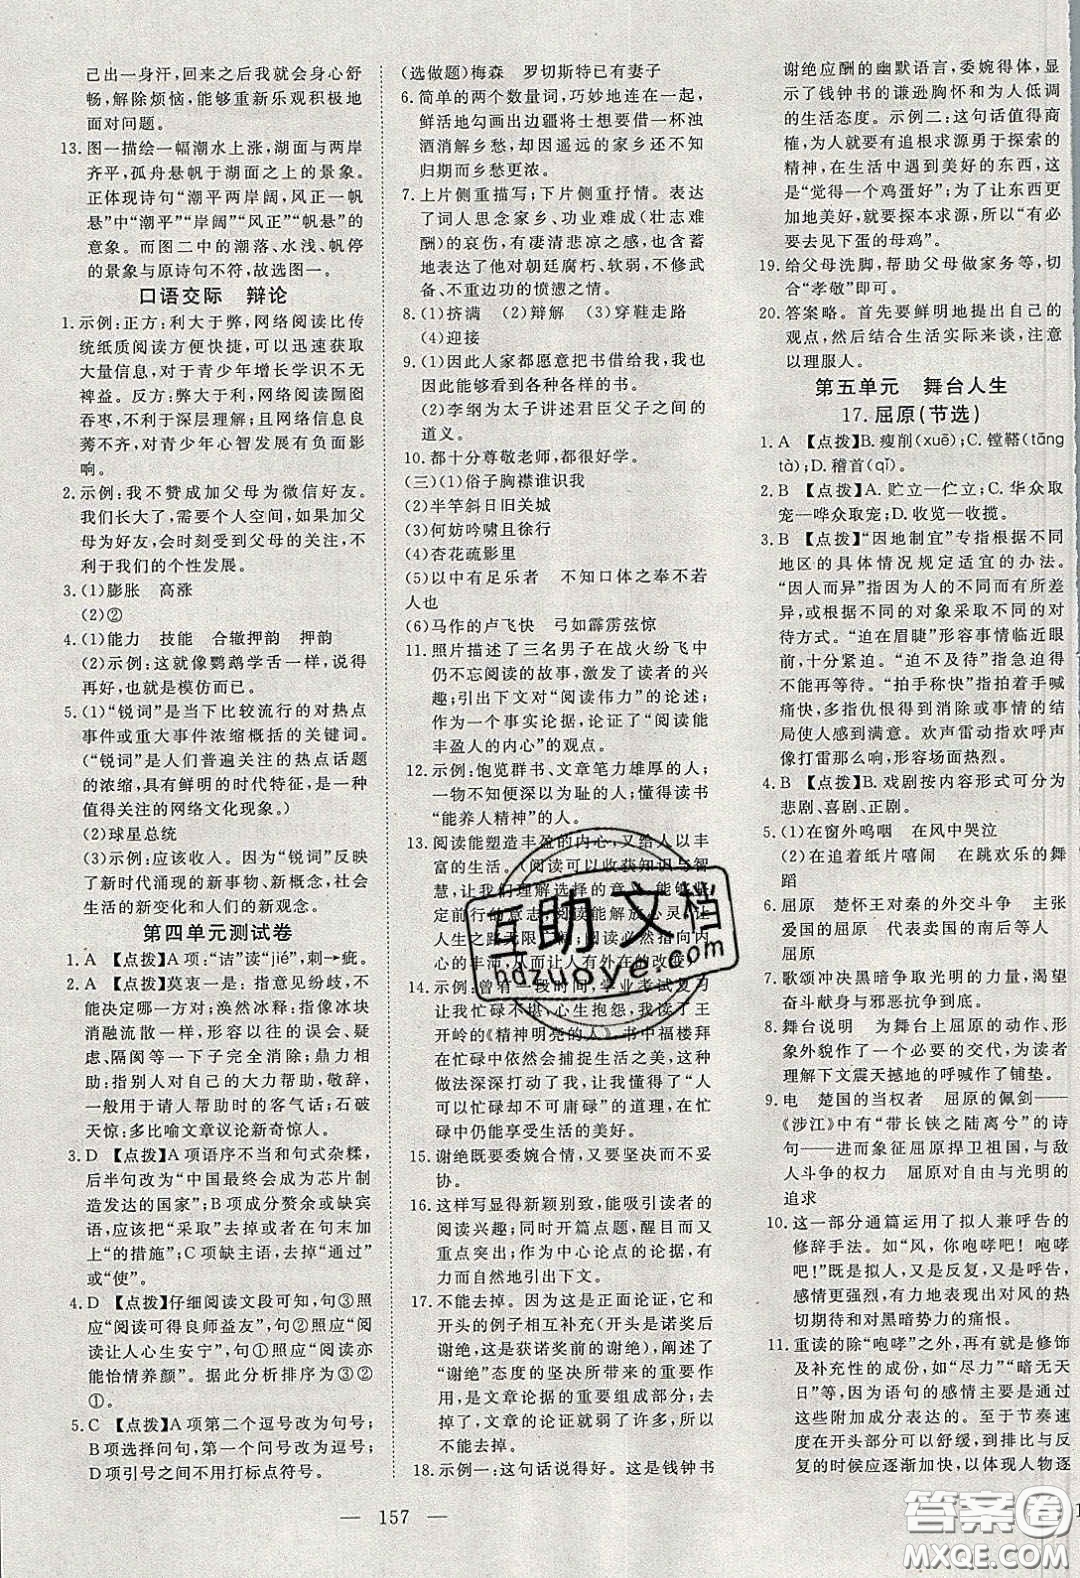 己出一身汗,回来之后我就会身心舒
畅,解除烦恼,能够重新乐观积极地
面对问题。
13.图一描绘一幅潮水上涨,湖面与两岸
齐平,孤舟悬帆于湖面之上的景象。
正体现诗句“潮平两岸阔,风正一帆
悬”中“潮平”“岸阔”“风正”“帆悬”的
意象。而图二中的潮落、水浅、帆停
的景象与原诗句不符,故选图一。
口语交际 辩论
1.示例:正方:利大于弊,网络阅读比传
统纸质阅读方便快捷,可以迅速获取
大量信息,对于青少年增长学识不无
裨益。反方:弊大于利,网络阅读囫囵
吞枣,不利于深层理解;且网络信息良
莠不齐,对青少年心智发展有负面影
响。
2.示例:我不赞成加父母为微信好友。
我们长大了,需要个人空间,如果加父
母为好友,会时刻受到父母的关注,不
利于我们的个性发展。
3.(1)膨胀 高涨
(2)②
4.(1)能力 技能 合辙押韵 押韵
(2)示例:这就像鹦鹉学舌一样,说得
再好,也就是模仿而已。
5.(1)“锐词”是当下比较流行的对热点
事件或重大事件浓缩概括的关键词。
(“锐词”是人们普遍关注的热点话题
的浓缩,具有鲜明的时代特征,是一种
值得关注的网络文化现象。)
(2)球星总统
(3)示例:应该收入。因为“锐词”反映
了新时代涌现的新事物、新概念,社会
生活的新变化和人们的新观念。
第四单元测试卷
1.A 【点拨】A项:“诘”读“jié”,刺→疵。
2.A 【点拨】莫衷一是:指意见纷歧,不
能决定哪一方对;涣然冰释:指像冰块
消融流散一样,形容以往的误会、疑
虑、隔阂等一下子完全消除;鼎力相
助:指别人对自己的大力帮助,敬辞,
一般用于请人帮助时的客气话;石破
天惊:多比喻文章议论新奇惊人。
3.D 【点拨】A项语序不当和句式杂糅,
后半句改为“中国最终将会成为芯片制
造发达的国家”;B项成分赘余或缺宾
语,应该把“采取”去掉或者在句末加
上“的措施”;C项缺主语,去掉“通过”
或“使”。
4.D 【点拨】仔细阅读文段可知,句③照
应“阅读可得良师益友”,句②照应“阅
读让人心生安宁”,句①照应“阅读亦
能怡情养颜”。此分析排序为:③②
①。
5.C 【点拨】A项第二个逗号改为句号;
B项选择问句,第一个问号改为逗号;
D项引号之间不用打标点符号。
(选做题)梅森 罗切斯特已有妻子
6.简单的两个数量词,巧妙地连在一起,
鲜活地勾画出边疆将士想要借一杯浊
酒消解乡愁,却因遥远的家乡还不知
归期而更惹乡愁。
7.上片侧重描写;下片侧重抒情。表达
了词人思念家乡、功业难成(壮志难
酬)的哀伤,有凄清悲凉之感,也含蓄
地表达了对朝廷腐朽、软弱,不修武
备、不重边功的愤懑之情。
8.(1)挤满 (2)辩解 (3)穿鞋走路
(4)迎接
9.(1)因此人家都愿意把书借给我,我
也因此能够看到各种各样的书。
(2)李纲为太子讲述君臣父子之间的
道义。
10.都十分尊敬老师,都好学。
(三)(1)俗子胸襟谁识我
(2)半竿斜日旧关城
(3)何妨吟啸且徐行
(4)杏花疏影里
(5)以中有足乐者 不知口体之奉不若
人也
(6)马作的卢飞快 弓如霹雳弦惊
11.照片描述了三名男子在战火纷飞中
仍不忘阅读的故事,激发了读者的兴
趣;引出下文对“阅读伟力”的论述;
作为一个事实论据,论证了“阅读能
丰盈人的内心”的观点。
12.示例:饱览群书、文章笔力雄厚的人;
一物不知便深以为耻的人;懂得读书
“能养人精神”的人。
13.阅读能塑造丰盈的内心,又给人以丰
富的生活。(阅读可以收获知识与智
慧,让我们理解选择的意义,能够坚定
前行的意志;阅读能解放心灵,让
人生之路无限广阔;阅读能指向内
心的丰沛,从而让人有外在的改变。)
14.示例:曾有一段时间,学业考试复习
让我忙碌不堪,心生抱怨,我读了王
开岭的《精神明亮的人》,书中福楼拜
在忙碌中依然会捕捉生活之美,这种
做法深深打动了我,让我懂得了“人
可以忙碌,却不可庸碌”的道理,在忙
碌中仍能享受生活的美好。
15.谢绝既要委婉合情,又要坚决不妥
协。
16.这样写显得新颖别致,能吸引读者的
阅读兴趣;同时开篇点题,醒目而又
重点突出;作为中心论点的论据,有力
而自然地引出下文。
17.不能去掉。因为这是正面论证,它和
开头的例子相互补充(开头是诺奖后
的谢绝,这是获诺奖前的谢绝),表明了
“谢绝”态度的坚决所带来的重要作
用,是文章论证的重要组成部分;去
掉了,文章的论证就弱了许多,所以
不能去掉。
18.示例一:这句话说得好。这是钱钟书
谢绝应酬的幽默语言,委婉得体,显
示了钱钟书的谦逊胸怀和为人低调
的生活态度。示例二:这句话值得商
榷,人就要有追根求源勇于探索的
精神,在生活中遇到美好的东西,正
是“觉得一个鸡蛋好”。为了让东西更
加地美好,要探本求源,所以“有必
要去见下蛋的母鸡”。
19.给父母洗脚,帮助父母做家务等,切
合“孝敬”即可。
20.答案略。首先要鲜明地提出自己的
观点,然后结合生活实际来谈,注意
以理服人。
第五单元 舞台人生
17.屈原(节选)
1.A 【点拨】B.瘦削(xuē);C.镗鞳(tāng
tà);D.稽首(qǐ)。
2.B 【点拨】A.贮立—伫立;C.华众取
宠—哗众取宠;D.收览—收揽。
3.B 【点拨】“因地制宜”专指根据不同
地区的具体情况规定适宜的办法。
“因人而异”指因为人的不同而有所差
异,或指不同的对象采取不同的对
待方式。“迫在眉睫”形容事情临近眼
前,十分紧迫。“迫不及待”指急迫得
不能再等待。“拍手称快”指拍着手喊
痛快,多指仇恨得到消除或事情的结
局使人感到满意。欢声雷动指欢呼声
像打雷那样响着,形容场面热烈。
4.B 【点拨】B.戏剧按内容形式可分为
悲剧、喜剧、正剧。
5.(1)在窗外呜咽 在风中哭泣
(2)在追着纸片嘻闹 在跳欢乐的舞
蹈
6.屈原 楚怀王对秦的外交斗争 主张
爱国的屈原 代表卖国的南后等人
屈原
7.歌颂冲决黑暗争取光明的力量,渴望
奋斗献身与邪恶抗争到底。
8.舞台说明 为舞台上屈原的动作、形
象外貌作了一个必要的交代,为读者
理解下文震天撼地的呼喊作了铺垫。
9.电 楚国的当权者 屈原的佩剑——
《涉江》中有“带长铗之陆离兮”的诗
句——进而象征屈原捍卫祖国,与敌
人斗争的权力 屈原对自由与光明的
追求
10.这一部分通篇运用了拟人兼呼告的
修辞手法。如“风,你咆哮吧!咆哮
吧!”既是拟人,又是反复,又是呼告,
情感更强烈,有力地表现出对风的热
切期待和对黑暗势力的痛恨。
11.重读的除“咆哮”之外,再有就是修饰
及补充性的成份,如“尽力”“暗无天
日”等,因为语句的感情主要是通过
这些附加成分表达的。至于节奏速
度,在开头部分可以舒缓,到排比与反
复的时候应逐渐加快,以体现人物逐
— 157 —
互助文档
hdzuoye.com
答案圈
MXQE.COM